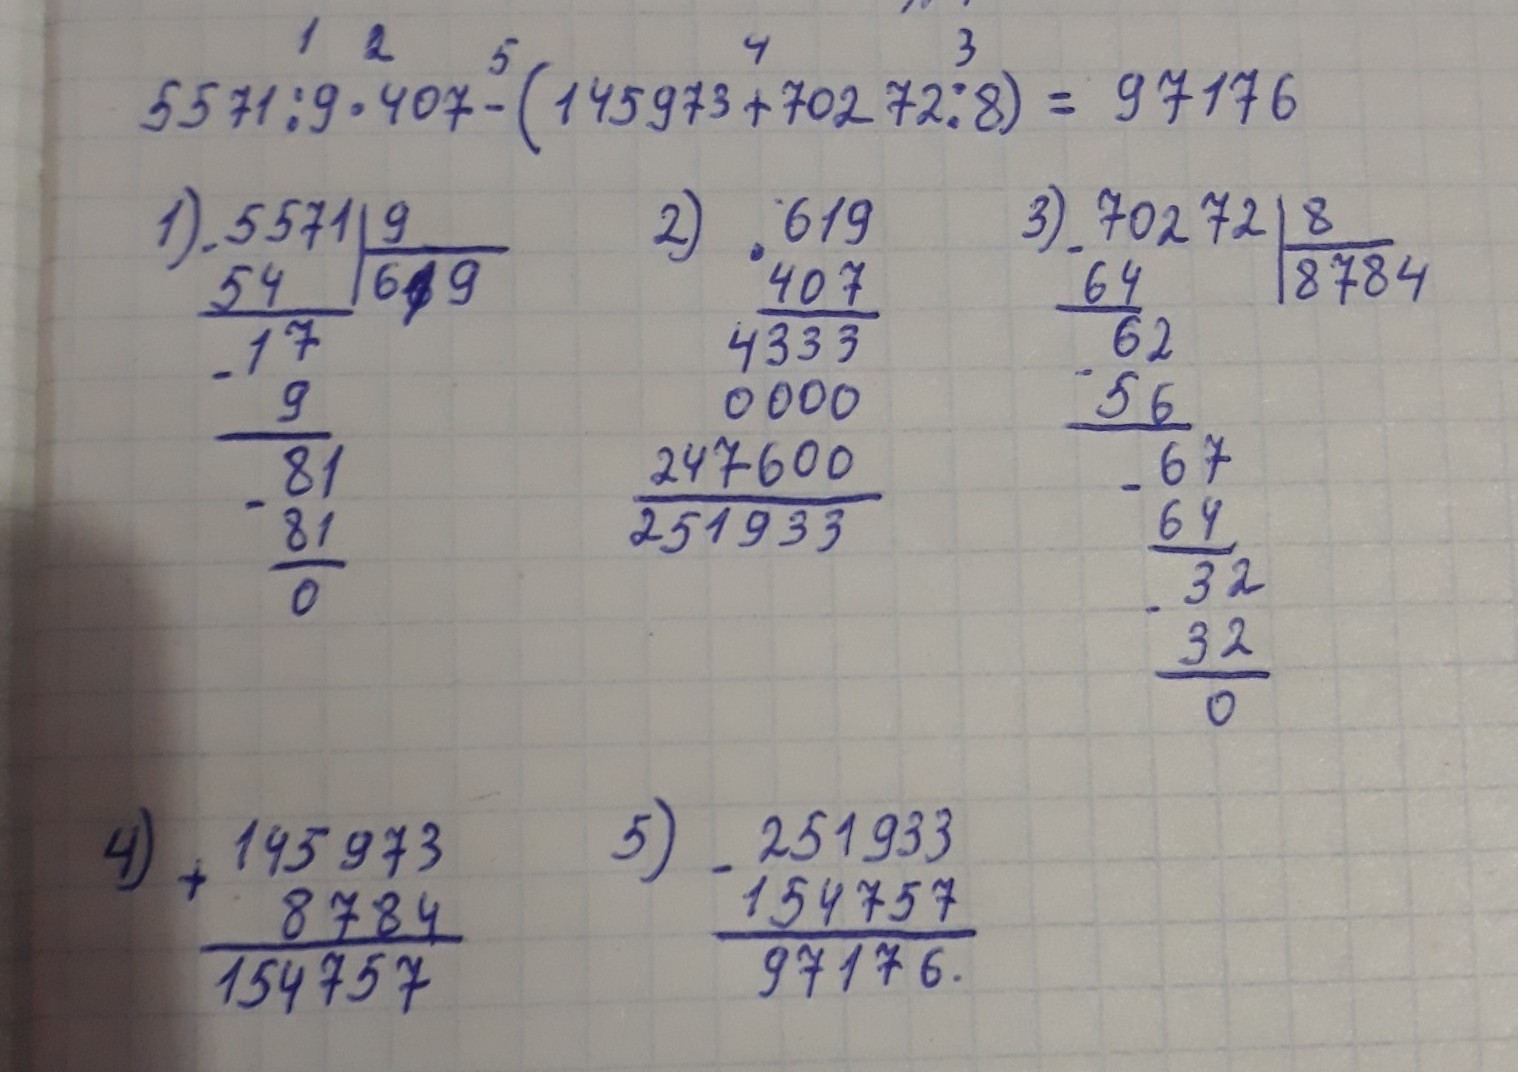 1 2 5 4 3
5571:9·407-(145973+70272:8) = 97176
1) -5571|9
54 619
-17
9
-81
81
0
2) ·619
407
4333
0000
247600
251933
3) -70272|8
64 8784
-62
56
-67
64
-32
32
0
4) +145973
8784
154757
5) -251933
154757
97176.